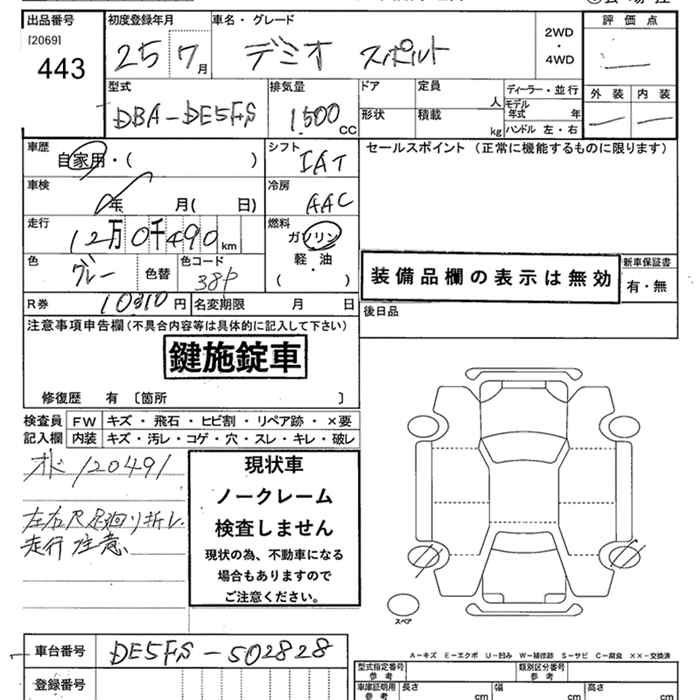 出品番号 初度登録年月 車名・グレード 評価点
[2069]
443
25 7月 デミオ スポルト 2WD・4WD
型式 排気量 ドア 定員 ディーラー・並行
DBA-DE5FS 1,500 CC 人 モデル年式 年
形状 積載 kg ハンドル 左・右
外装 内装
車歴 シフト セールスポイント (正常に機能するものに限ります)
自家用・( ) IAT
車検 冷房
年 月( 日) AAC
走行 燃料
12万0千490km ガソリン
軽・油
( )
色 色替 色コード
グレー 38P
装備品欄の表示は無効
新車保証書
有・無
R券 10310円 名変期限 月 日
後日品
注意事項申告欄(不具合内容等は具体的に記入して下さい)
鍵施錠車
修復歴 有 〔箇所 〕
検査員 FW キズ・飛石・ヒビ割・リペア跡・×要
記入欄 内装 キズ・汚レ・コゲ・穴・スレ・キレ・破レ
オド 120491
左右R足廻り折レ
走行注意
現状車
ノークレーム
検査しません
現状の為、不動車になる
場合もありますので
ご注意ください。
スペア
車台番号 DE5FS-502828
A-キズ E-エクボ U-凹み W-補修跡 S-サビ C-腐食 ××-交換済
型式指定番号 参考 類別区分番号 参考
登録番号
車庫証明用 参考 長さ cm 幅 cm 高さ cm